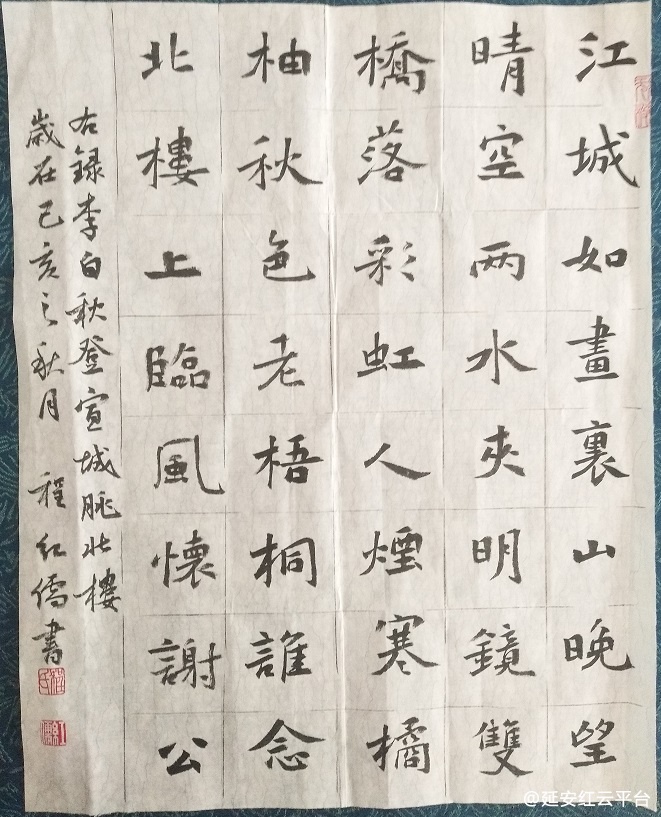 江城如畫裏山晚望
晴空兩水夾明鏡雙
橋落彩虹人煙寒橘
柚秋色老梧桐誰念
北樓上臨風懷謝公
右錄李白秋登宣城脁北樓
歲在己亥之秋月 程紅儒書
@延安红云平台